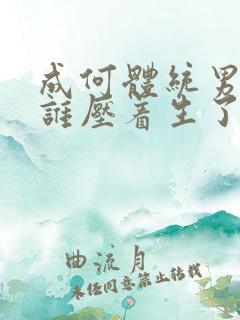 成何體統男
誰壓着生了
曲流月
未經同意禁止轉載